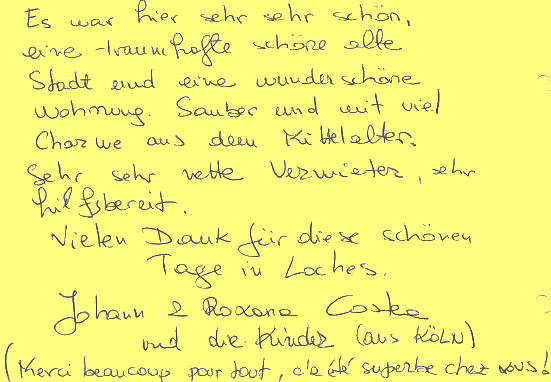 Es war hier sehr sehr schön,
eine traumhafte schöne alte
Stadt und eine wunderschöne
Wohnung. Sauber und mit viel
Charme aus dem Mittelalter.
Sehr sehr nette Vermieter, sehr
hilfsbereit.
Vielen Dank für diese schönen
Tage in Loches.
Johann & Roxana Coska
und die Kinder (aus KÖLN)
(Merci beaucoup pour tout, c'a été superbe chez vous!